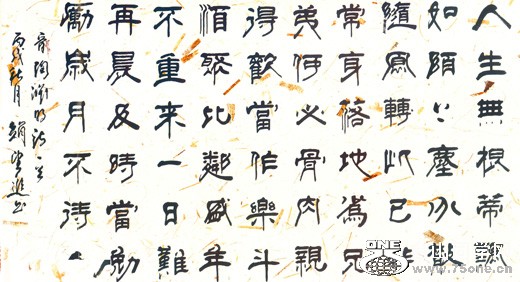 人生無根蒂飄
如陌上塵分散
隨風轉此已非
常身落地爲兄
弟何必骨肉親
得歡當作樂斗
酒聚比鄰盛年
不重來一日難
再晨及時當勉
勵歲月不待人
陶淵明詩一首
丙戌秋月 書
ONE
www.75one.cn